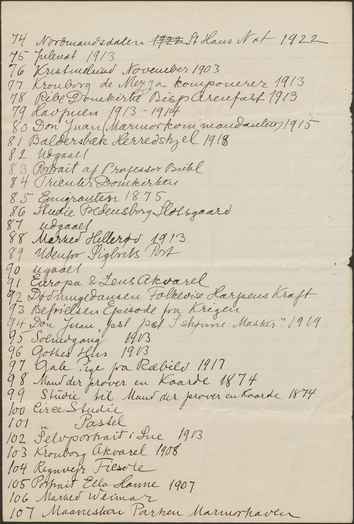 74 Nordmandsdalen 1922 St Hans Nat 1922
75 Julenat 1913
76 Kristinelund November 1903
77 Kronborg de Meza komponerer 1913
78 Ribe Domkirke Bisp 1913
79 Havfruen 1913-1914
80 Don Juan Marmorkommandanten 1915
81 Baldersbæk Herredstjel 1918
82 Udgaaet
83 Portrait af Professor Buhl
84 Trienter Domkirken
85 Emigranten 1875
86 Studie Slotsgaard
87 udgaaet
88 Marked Hillerød 1913
89 Udenfor Port
90 ugaaet
91 Europa & Zeus Akvarel
92 Dødningedansen Folkevise Harpens Kraft
93 Befrielsen Episode fra Krigen
94 Don Juan 1ost "skønne Masker" 1919
95 Solnedgang 1913
96 Hus 1913
97 Pige fra Rebild 1917
98 Mand der prøver en Kaarde 1874
99 Studie til Mand der prøver en Kaarde 1874
100 Studie
101 Pastel
102 Selvportrait i Sne 1913
103 Kronborg Akvarel 1908
104 Fiesole
105 Portrait Ella Hanne 1907
106 Marked Weimar
107 Maaneskin Parken Marmorhaven